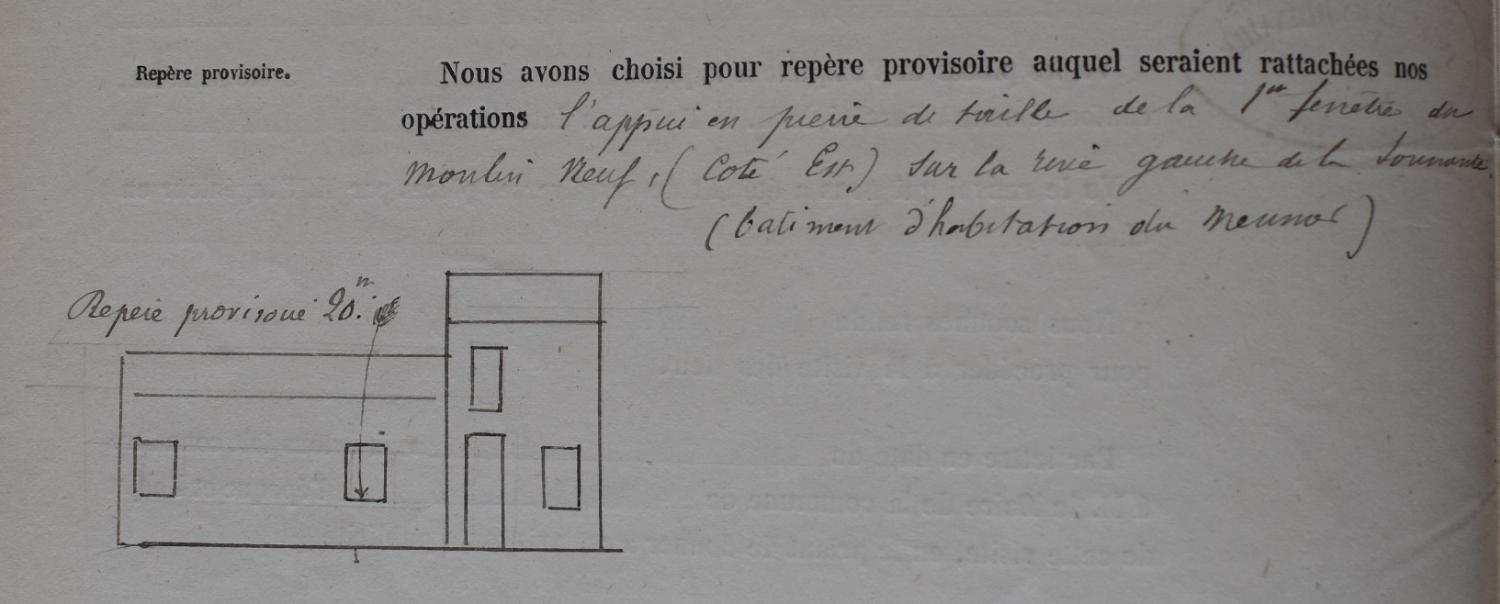 Repère provisoire.
Nous avons choisi pour repère provisoire auquel seraient rattachées nos
opérations l'appui en pierre de taille de la 1ere fenêtre du
Moulin Neuf, (Coté Est) sur la rive gauche de la
(batiment d'habitation du Meunier)
Repère provisoire 20.m